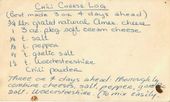 Chili Cheese Log
(Best made 3 or 4 days ahead)
3/4 lb grated natural Amer. cheese
1 3 oz. pkg soft cream cheese
1/4 t. salt
1/4 t. pepper
1/4 t. garlic salt
1/2 t. Worcestershire
Chili powder
Three or 4 days ahead: Thoroughly
combine cheeses, salt, pepper, garlic
salt, Worcestershire. (To mix easily